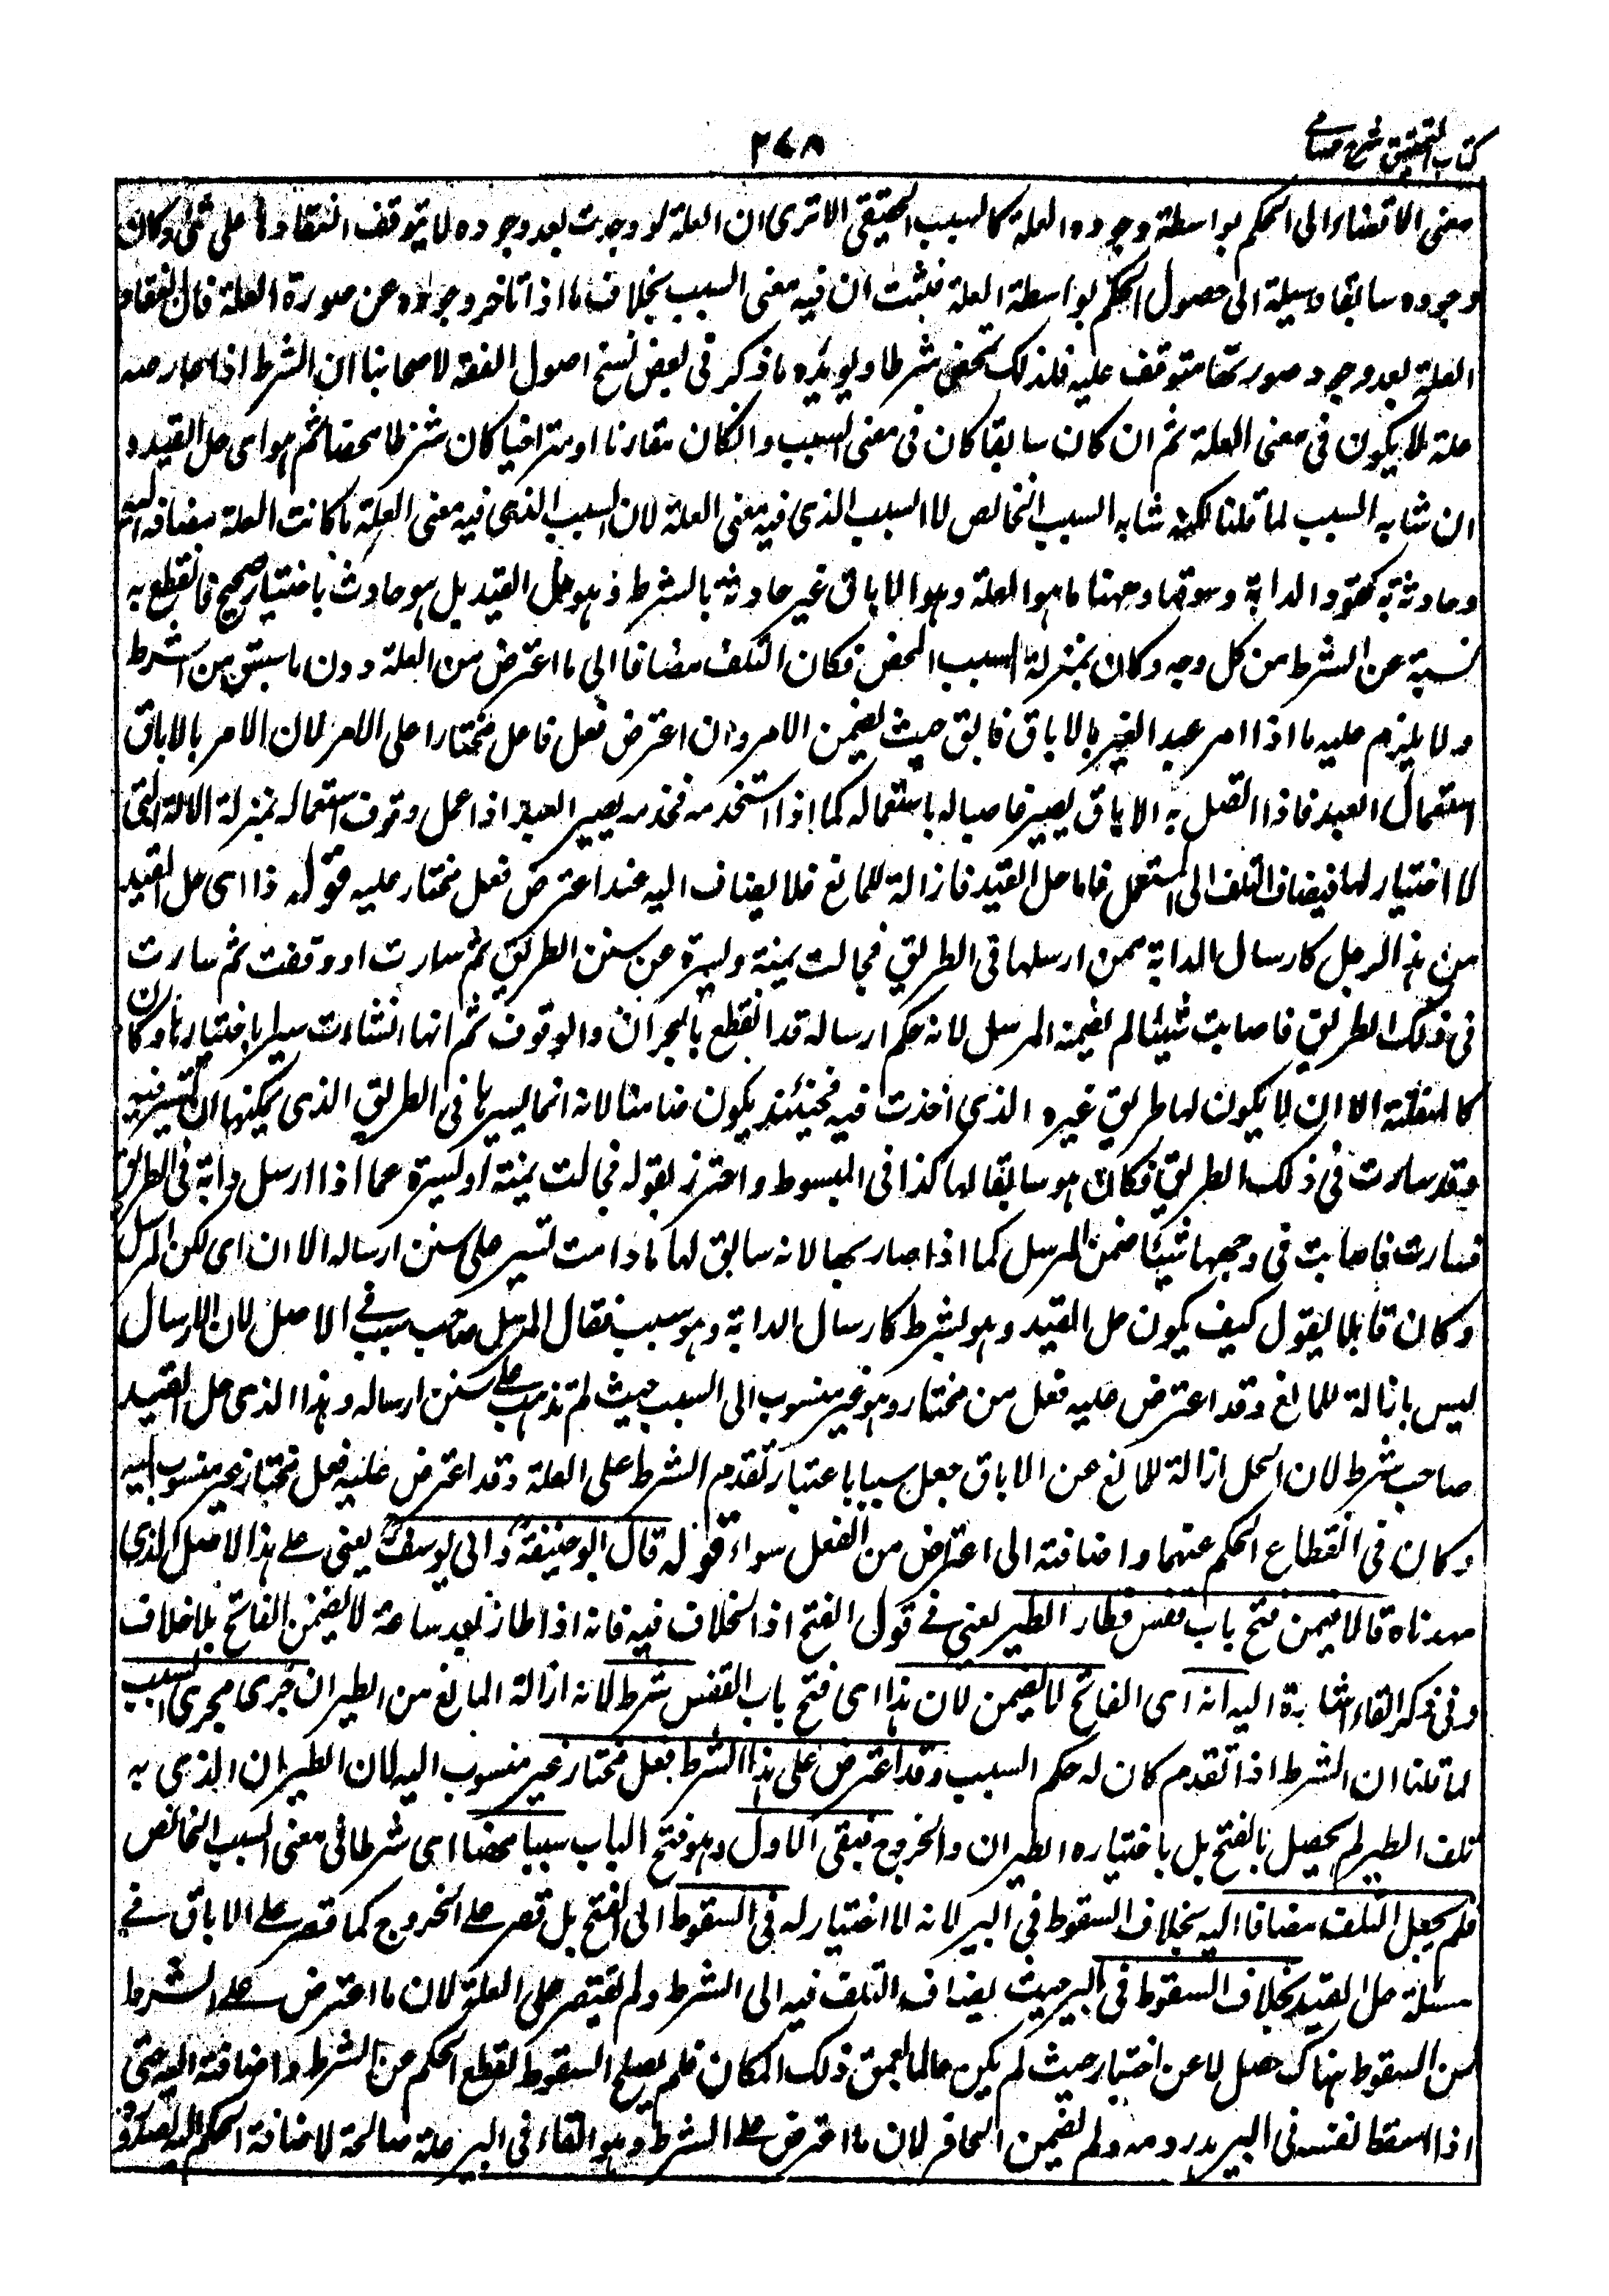 كتاب التحقيق شرح حسامى
٢٤٨
معنى الاقضاء الى الحكم بواسطة وجوده العلة كالسبب الحقيقى الا ترى ان العلة لو وجدت بعد وجوده لا يتوقف انعقادها على شئ وكان
وجوده سابقا وسيلة الى حصول الحكم بواسطة العلة فثبت ان فيه معنى السبب بخلاف ما اذا تاخر وجوده عن صورة العلة فان انعقاد
العلة بعد وجود صورتها متوقف عليه فلذلك تمحض شرطا ويؤيده ما ذكر فى بعض نسخ اصول الفقه لاصحابنا ان الشرط اذا عارضه
علة لا يكون فى معنى العلة ثم ان كان سابقا كان فى معنى السبب وان كان مقارنا او متراخيا كان شرطا محضا ثم هو اى حل القيد و
ان شابه السبب لما قلنا لكنه شابه السبب الخالص لا السبب الذى فيه معنى العلة لان السبب الذى فيه معنى العلة ما كانت العلة مضافة اليه
وحادثة به كقود الدابة وسوقها وههنا ما هو العلة وهو الاباق غير حادثة بالشرط وهو حل القيد بل هو حادث باختيار صحيح فانقطع به
نسبة عن الشرط من كل وجه وكان بمنزلة السبب المحض فكان التلف مضافا الى ما اعترض من العلة دون ما سبق من الشرط
ولا يلزم عليه ما اذا امر عبد الغير بالاباق فابق حيث يضمن الامر وان اعترض فعل فاعل مختار على الامر لان الامر بالاباق
استعمال العبد فاذا اتصل به الاباق يصير غاصبا له باستعماله كما اذا استخدمه فخدمه يصير العبد اذا عمل وفق استعماله بمنزلة الالة التى
لا اختيار لها فيضاف التلف الى المستعمل فاما حل القيد فازالة للمانع فلا يضاف اليه عند اعتراض فعل مختار عليه قوله ذا اى حل القيد
من هذا الرجل كارسال الدابة ممن ارسلها فى الطريق فجالت يمنة ويسرة عن سنن الطريق ثم سارت او وقفت ثم سارت
فى ذلك الطريق فاصابت شيئا لم يضمنه المرسل لانه حكم ارساله قد انقطع بالجولان والوقوف ثم انها انشاءت سيرا باختيارها وكان
كالمنفلتة الا ان لا يكون لها طريق غيره الذى اخذت فيه فحينئذ يكون ضامنا لانه انما يسيرها فى الطريق الذى يمكنها ان تسير فيه
وقد سارت فى ذلك الطريق فكان هو سابقا لها كذا فى المبسوط واحترز بقوله فجالت يمنة او يسرة عما اذا ارسل دابة فى الطريق
فسارت فاصابت فى وجهها شيئا ضمن المرسل كما اذا صار بها لانه سابق لها ما دامت تسير على سنن ارساله الا ان اى لكن المرسل
وكان قائلا يقول كيف يكون حل القيد وهو شرط كارسال الدابة وهو سبب فقال المرسل صاحب سبب فى الاصل لان الارسال
ليس بازالة للمانع وقد اعترض عليه فعل من مختار وهو غير منسوب الى السبب حيث لم تذهب على سنن ارساله وهذا الذى حل القيد
صاحب شرط لان الحل ازالة للمانع عن الاباق جعل سببا باعتبار تقدم الشرط على العلة وقد اعترض عليه فعل مختار غير منسوب اليه
وكان فى انقطاع الحكم عنهما واضافته الى اعتراض من الفعل سواء قوله قال ابو حنيفة وابى يوسف يعنى على هذا الاصل الذى
مهدناه قالا فيمن فتح باب قفس فطار الطير يعنى فى قول الفتح اذ الخلاف فيه فانه اذا طار بعد ساعة لا يضمن الفاتح بلا خلاف
وفى ذكر الفاء اشارة اليه انه اى الفاتح لا يضمن لان هذا اى فتح باب القفس شرط لانه ازالة المانع من الطيران جرى مجرى السبب
لما قلنا ان الشرط اذا تقدم كان له حكم السبب وقد اعترض على هذا الشرط فعل مختار غير منسوب اليه لان الطيران الذى به
تلف الطير لم يحصل بالفتح بل باختياره الطيران والخروج فبقى الاول وهو فتح الباب سببا محضا اى شرطا فى معنى السبب الخالص
فلم يجعل التلف مضافا اليه بخلاف السقوط فى البير لانه لا اختيار له فى السقوط الى الفتح بل قصر على الخروج كما قصر على الاباق فى
مسئلة حل القيد بخلاف السقوط فى البير حيث يضاف التلف فيه الى الشرط ولم يقتصر على العلة لان ما اعترض على الشرط
من السقوط هناك حصل لا عن اختيار حيث لم يكن عالما بعمق ذلك المكان فلم يصلح السقوط لقطع الحكم عن الشرط واضافته اليه حتى
اذا اسقط نفسه فى البير هدر دمه ولم يضمن الحافر لان ما اعترض على الشرط وهو القاء فى البير علة صالحة لاضافة الحكم اليه